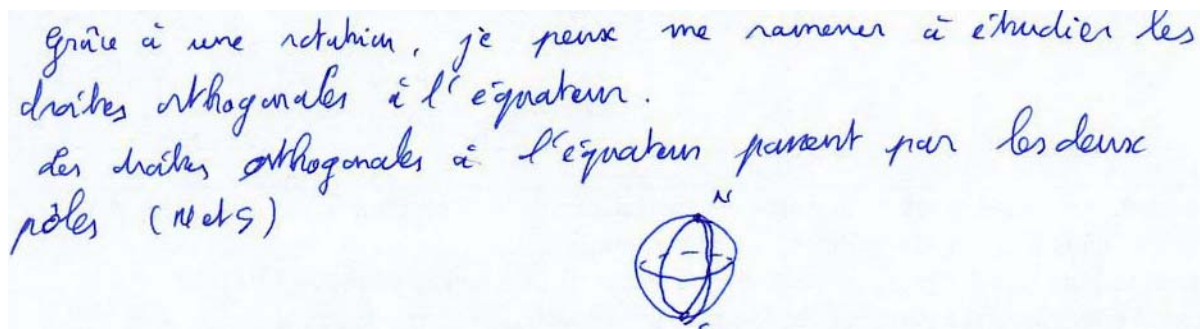 Grâce à une rotation, je peux me ramener à étudier les
droites orthogonales à l'équateur.
Les droites orthogonales à l'équateur passent par les deux
pôles (N et S)
N
S